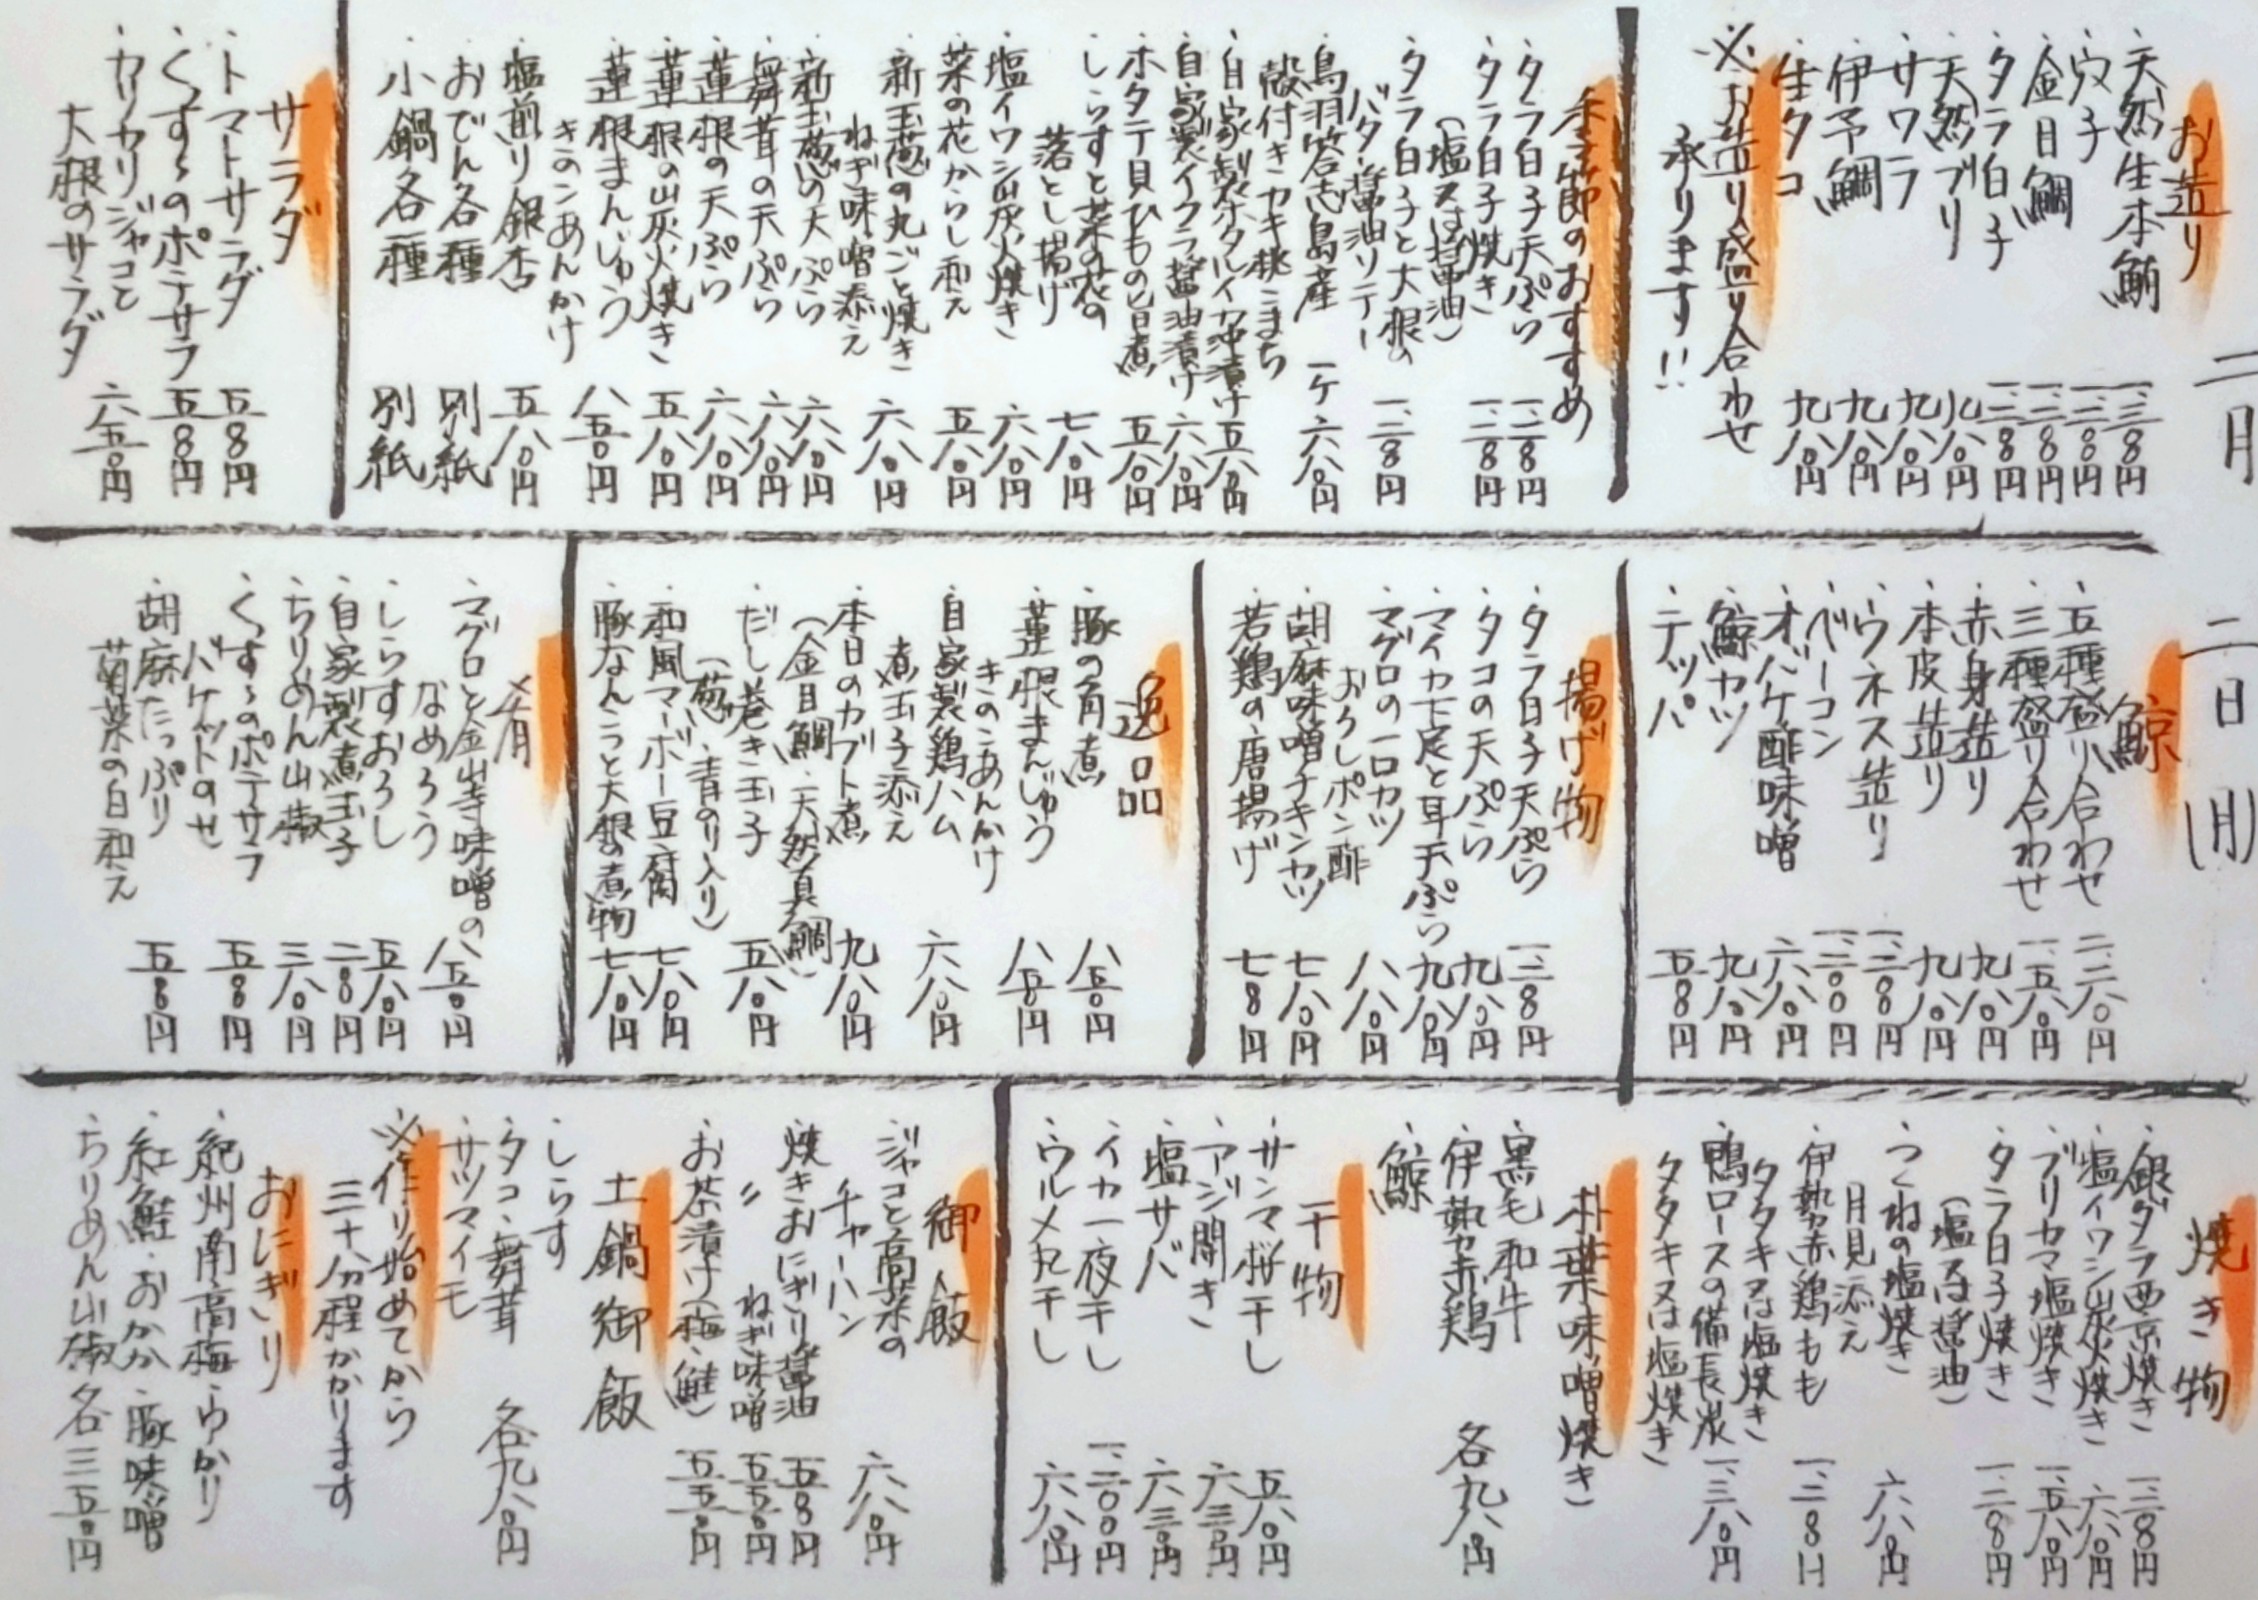 二月二日(月)
お造り
・天然生本鮪 一、三八〇円
・穴子 一、二八〇円
・金目鯛 一、二八〇円
・タラ白子 一、二八〇円
・天然ブリ 九八〇円
・サワラ 九八〇円
・伊予鯛 九八〇円
・生タコ 九八〇円
※お造り盛り合わせ
承ります!!
季節のおすすめ
・タラ白子天ぷら 一、二八〇円
・タラ白子焼き 一、二八〇円
(塩又は醤油)
・タラ白子と大根の
バター醤油ソテー 一、二八〇円
・鳥羽答志島産
殻付きカキ桃こまち 一ケ 六八〇円
・自家製ホタルイカ沖漬け 五八〇円
・自家製イクラ醤油漬け 六八〇円
・ホタテ貝ひもの旨煮 五八〇円
・しらすと菜の花の
落とし揚げ 七八〇円
・塩イワシ炭火焼き 六八〇円
・菜の花からし和え 五八〇円
・新玉葱の丸ごと焼き
ねぎ味噌添え 六八〇円
・新玉葱の天ぷら 六八〇円
・舞茸の天ぷら 六八〇円
・蓮根の天ぷら 六八〇円
・蓮根の炭火焼き 五八〇円
・蓮根まんじゅう
きのこあんかけ 八五〇円
・塩煎り銀杏 五八〇円
・おでん各種 別紙
・小鍋各種 別紙
サラダ
・トマトサラダ 五八〇円
・くすくのポテサラ 五八〇円
・カリカリジャコと
大根のサラダ 六五〇円
鯨
・五種盛り合わせ 二、二八〇円
・三種盛り合わせ 一、五八〇円
・赤身造り 九八〇円
・本皮造り 九八〇円
・ウネス造り 一、二八〇円
・ベーコン 一、二〇〇円
・オバケ酢味噌 六八〇円
・鯨カツ 九八〇円
・テッパ 五八〇円
揚げ物
・タラ白子天ぷら 一、二八〇円
・タコの天ぷら 九八〇円
・マイカ下足と耳天ぷら 九八〇円
・マグロの一口カツ
おろしポン酢 八八〇円
・胡麻味噌チキンカツ 七八〇円
・若鶏の唐揚げ 七八〇円
逸品
・豚の角煮 八五〇円
・蓮根まんじゅう
きのこあんかけ 八五〇円
・自家製鶏ハム
煮玉子添え 六八〇円
・本日のカブト煮 九八〇円
(金目鯛・天然真鯛)
・だし巻き玉子 五八〇円
(葱・青のり入り)
・和風マーボー豆腐 七八〇円
・豚なんこつと大根の煮物 七八〇円
肴
・マグロと金山寺味噌の
なめろう 八五〇円
・しらすおろし 五八〇円
・自家製煮玉子 二八〇円
・ちりめん山椒 三八〇円
・くすくのポテサラ
バケットのせ 五八〇円
・胡麻たっぷり
菊菜の白和え 五八〇円
焼き物
・銀ダラ西京焼き 一、二八〇円
・塩イワシ炭火焼き 六八〇円
・ブリカマ塩焼き 一、五八〇円
・タラ白子焼き 一、二八〇円
(塩又は醤油)
・つくねの塩焼き
月見添え 六八〇円
・伊勢赤鶏もも
タタキ又は塩焼き 一、二八〇円
・鴨ロースの備長炭
タタキ又は塩焼き 一、三八〇円
朴葉味噌焼き
・黒毛和牛
・伊勢赤鶏 各九八〇円
・鯨
干物
・サンマ桜干し 五八〇円
・アジ開き 六三〇円
・塩サバ 六三〇円
・イカ一夜干し 一、二〇〇円
・ウルメ丸干し 六八〇円
御飯
・ジャコと高菜の
チャーハン 六八〇円
・焼きおにぎり醤油 五八〇円
・〃 ねぎ味噌 五五〇円
・お茶漬け(梅・鮭) 五五〇円
土鍋御飯
・しらす
・タコ・舞茸 各九八〇円
・サツマイモ
※作り始めてから
三十分程かかります
おにぎり
・紀州南高梅・ゆかり
・紅鮭・おかか・豚味噌
・ちりめん山椒 各三五〇円